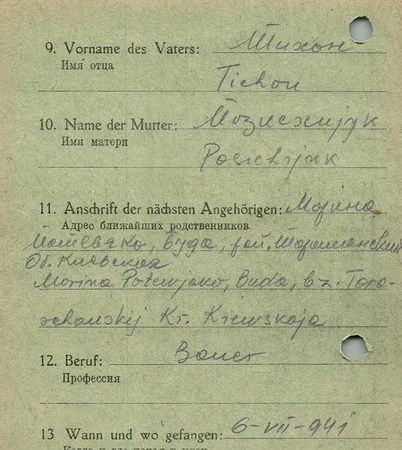 9. Vorname des Vaters: Тихон
Имя отца
Tichon
10. Name der Mutter:
Имя матери
11. Anschrift der nächsten Angehörigen: Морина
Адрес ближайших родственников
Буда,
Об. Киевская
Morina Potewjako, Buda, bz. Tara-
schanskij Kr. Kiewskaja
12. Beruf: Bauer
Профессия
13 Wann und wo gefangen: 6-VII-941